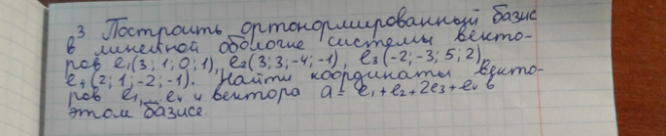 3 Построить ортонормированный базис
в линейной оболочке системы векто-
ров e₁(3; 1; 0; 1), e₂(3; 3; -4; -1), e₃(-2; -3; 5; 2),
e₄(2; 1; -2; -1). Найти координаты векто-
ров e₁,... e₄ и вектора a = e₁+e₂+2e₃+e₄ в
этом базисе.